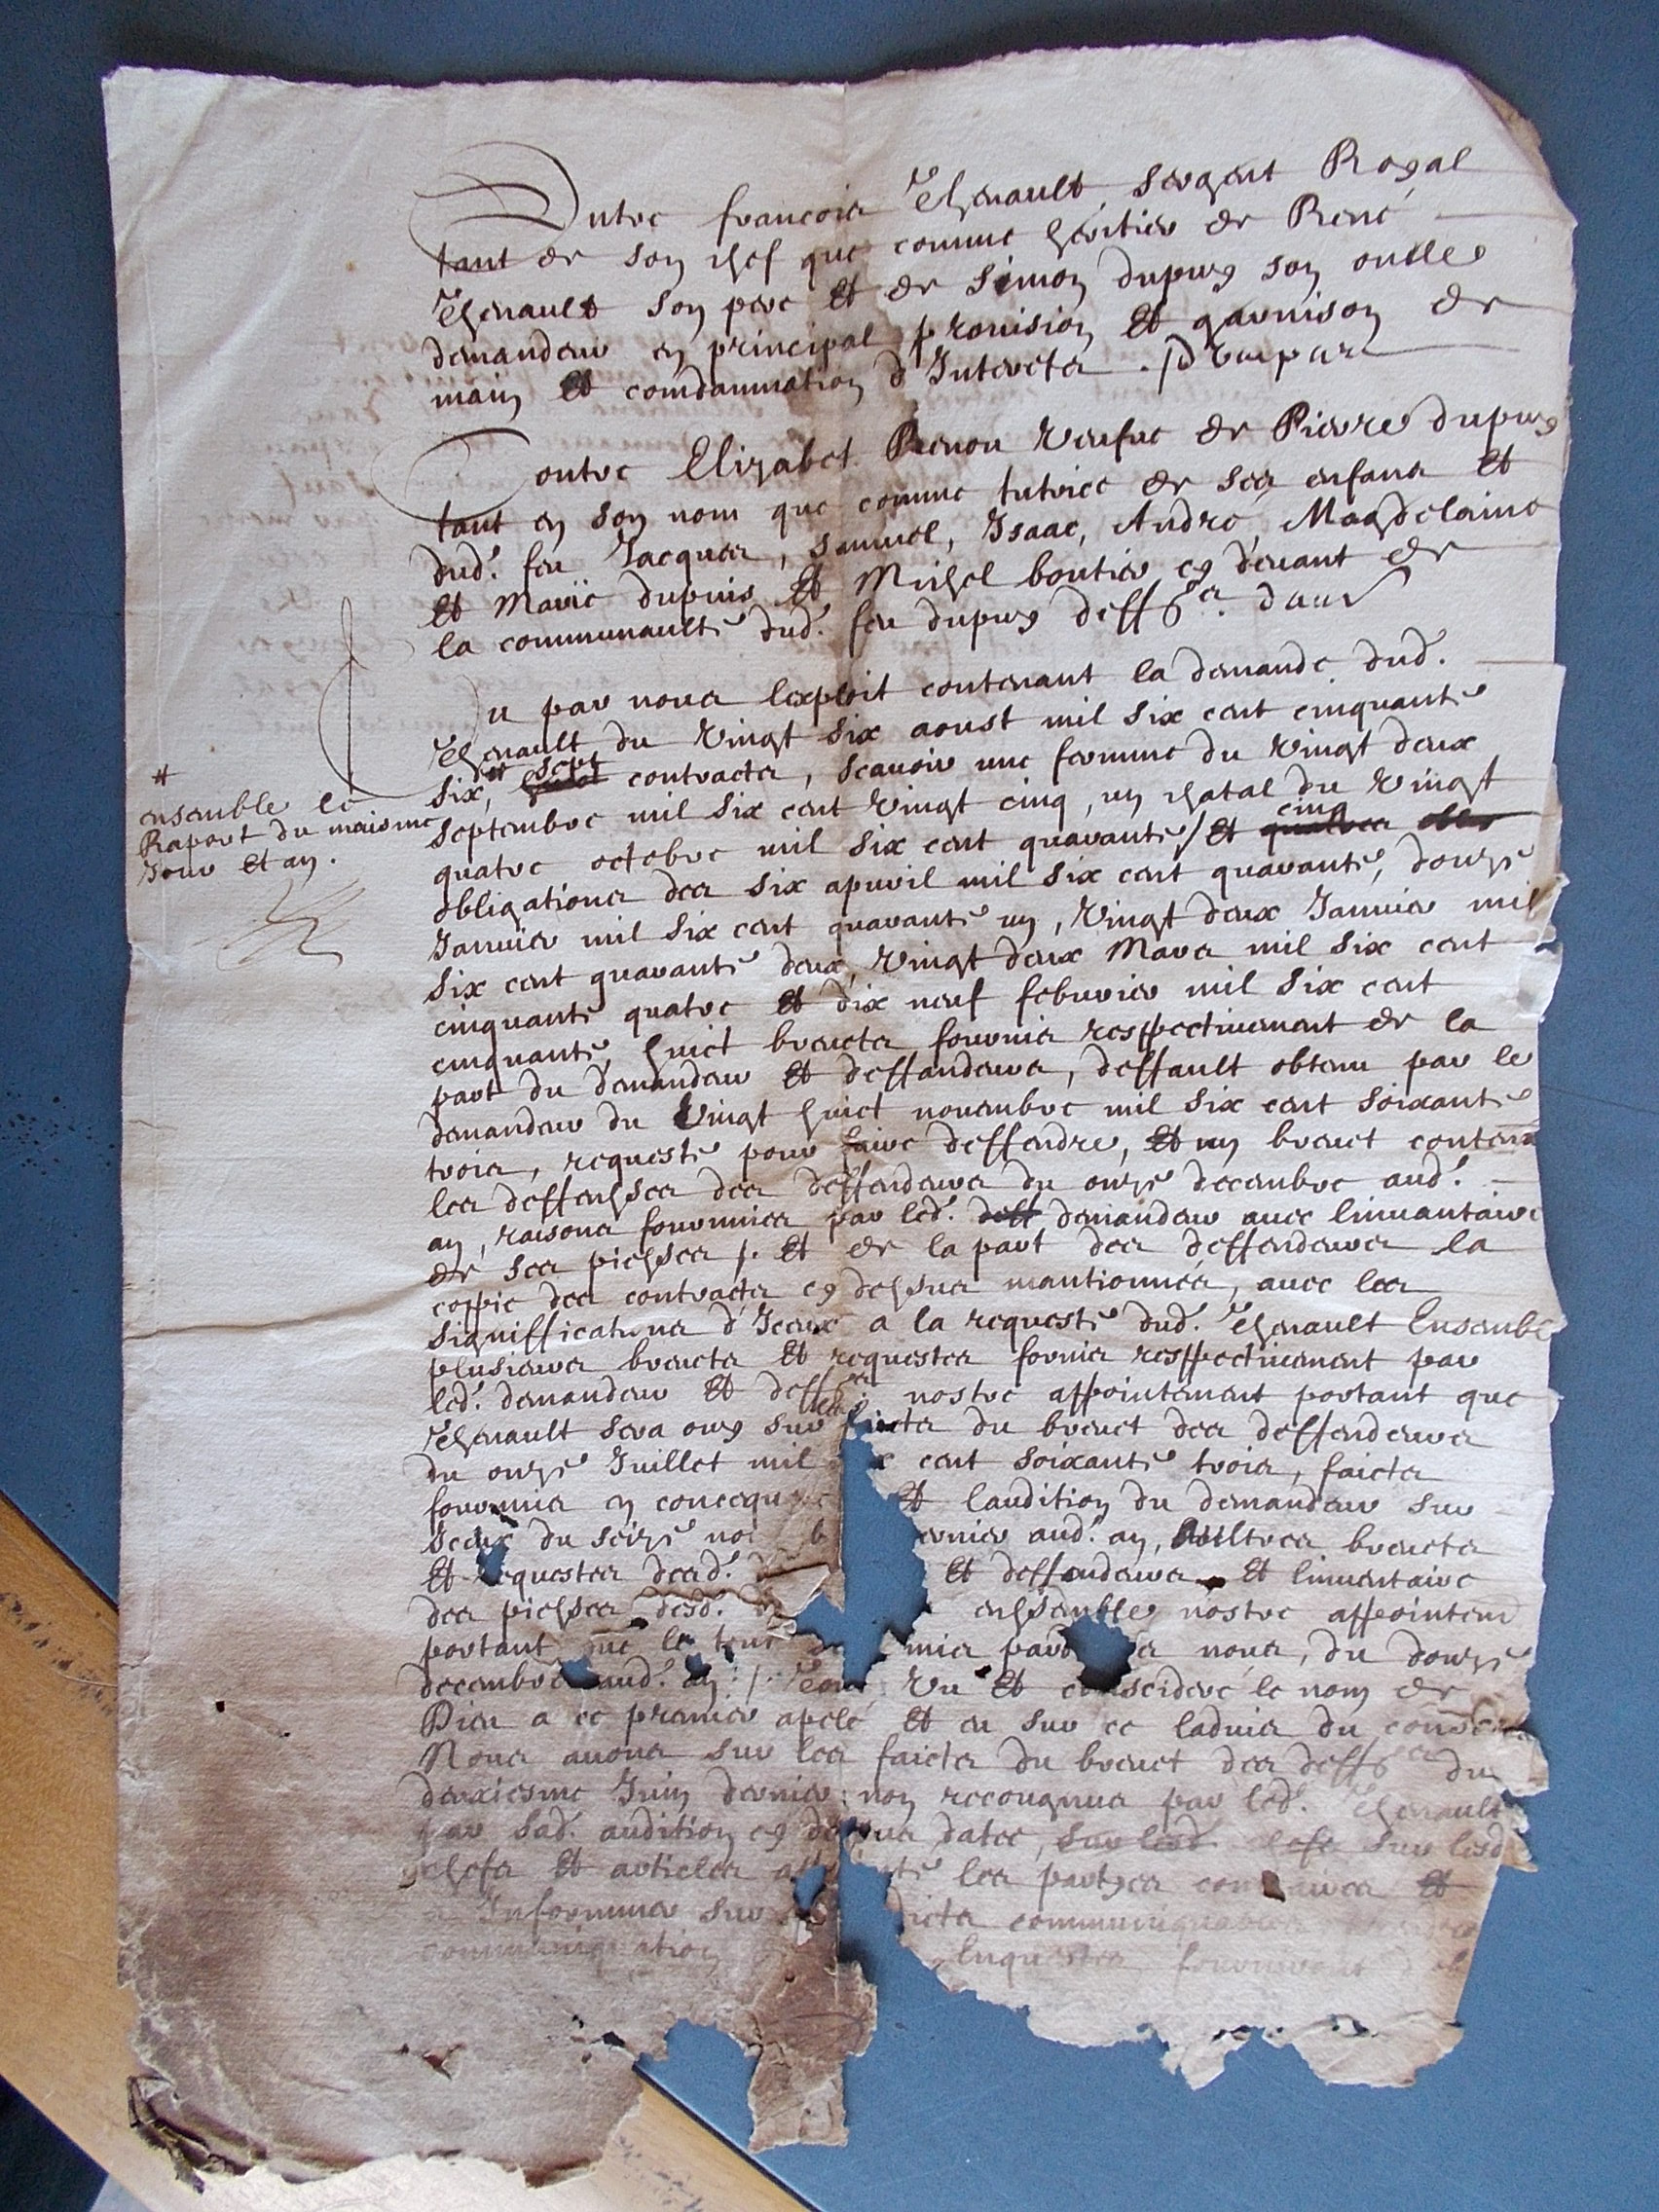 Entre francois Thenault sergent Royal
tant de son chef que comme heritier de René
Thenault son pere Et de Simon dupuy son oncle
demandeur en principal provision Et garnison de
main Et comdamnation d'Interests .
Contre Elizabet Renou veufue de Pierre dupuy
tant en son nom que comme tutrice de ses enfans Et
dud. feu Jacques, Samuel, Isaac, André, Magdelaine
Et Marie dupuis Et Michel boutier cy devant de
la communaulté dud. feu dupuy deffrs. d'aur
Vu par nous lexploit contenant la demande dud.
Thenault du vingt six aoust mil six cent cinquante
six, contracts, scauoir une ferme du vingt deux
septembre mil six cent vingt cinq, un chatal du vingt
quatre octobre mil six cent quarante / Et cinq
obligations des six apuril mil six cent quarante, douze
Januier mil six cent quarante un, vingt deux Januier mil
six cent quarante deux, vingt deux Mars mil six cent
cinquante quatre Et dix neuf febvrier mil six cent
cinquante huict breuets fournis respectiuement de la
part du demandeur Et deffandeurs, deffault obtenu par le
demandeur du vingt huict nouembre mil six cent soixante
trois, requeste pour faire deffendre, Et un breuet contenant
les deffences des deffendeurs du onze decembre aud.
an, raisons fournies par led. deff demandeur auec linuantaire
de ses pieces /. Et de la part des deffendeurs la
coppie des contracts cy dessus mantionnés, auec les
significations d'Iceux a la requeste dud. Thenault Ensemble
plusieurs breuets Et requestes fornis respectiuement par
led. demandeur Et deffrs. nostre appointement portant que
Thenault sera ouy sur les faicts du breuet des deffendeurs
du onze Juillet mil cent soixante trois, faicts
fournis en concequ Et laudition du demandeur sur
Iceux du seize no b ernier aud. an, Aultres breuets
Et requestes desd. Et deffandeurs Et linuentaire
des pieces desd. ensemble nostre appointem
portant le tout mis par nous, du douze
decembre aud. an :/. Tout vu Et conscideré le nom de
Dieu a ce premier apelé Et eu sur ce laduis du conseil
Nous auons sur les faicts du breuet des deffrs du
deuxiesme Juin dernier non recougnus par led. Thenault
par sad. audition cy dessus datée, sur lesd. chefs sur lesd
chefs Et articles les partyes contraires Et
a Informer sur faicts communiquables
communication Enquestes fourniront
#
ensemble le
Raport du maisme
Jour Et an.